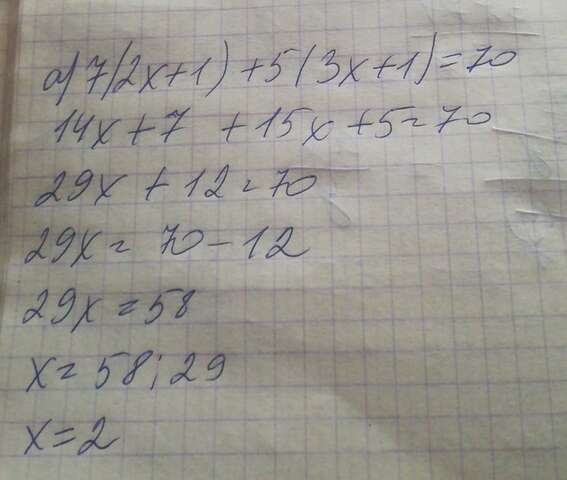 а) 7(2x+1) +5(3x+1)=70
14x+7 +15x+5=70
29x+12=70
29x=70-12
29x=58
x=58:29
x=2